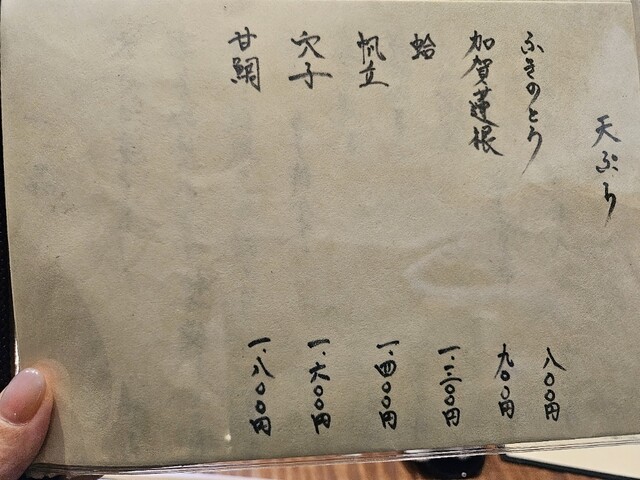 天ぷら
ふきのとう 八〇〇円
加賀蓮根 九〇〇円
蛤 一.三〇〇円
帆立 一.四〇〇円
穴子 一.六〇〇円
甘鯛 一.八〇〇円